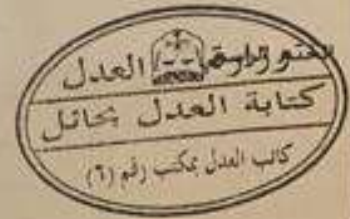 الختم الرسمي العدل
كتابة العدل بحائل
كاتب العدل بمكتب رقم (٦)